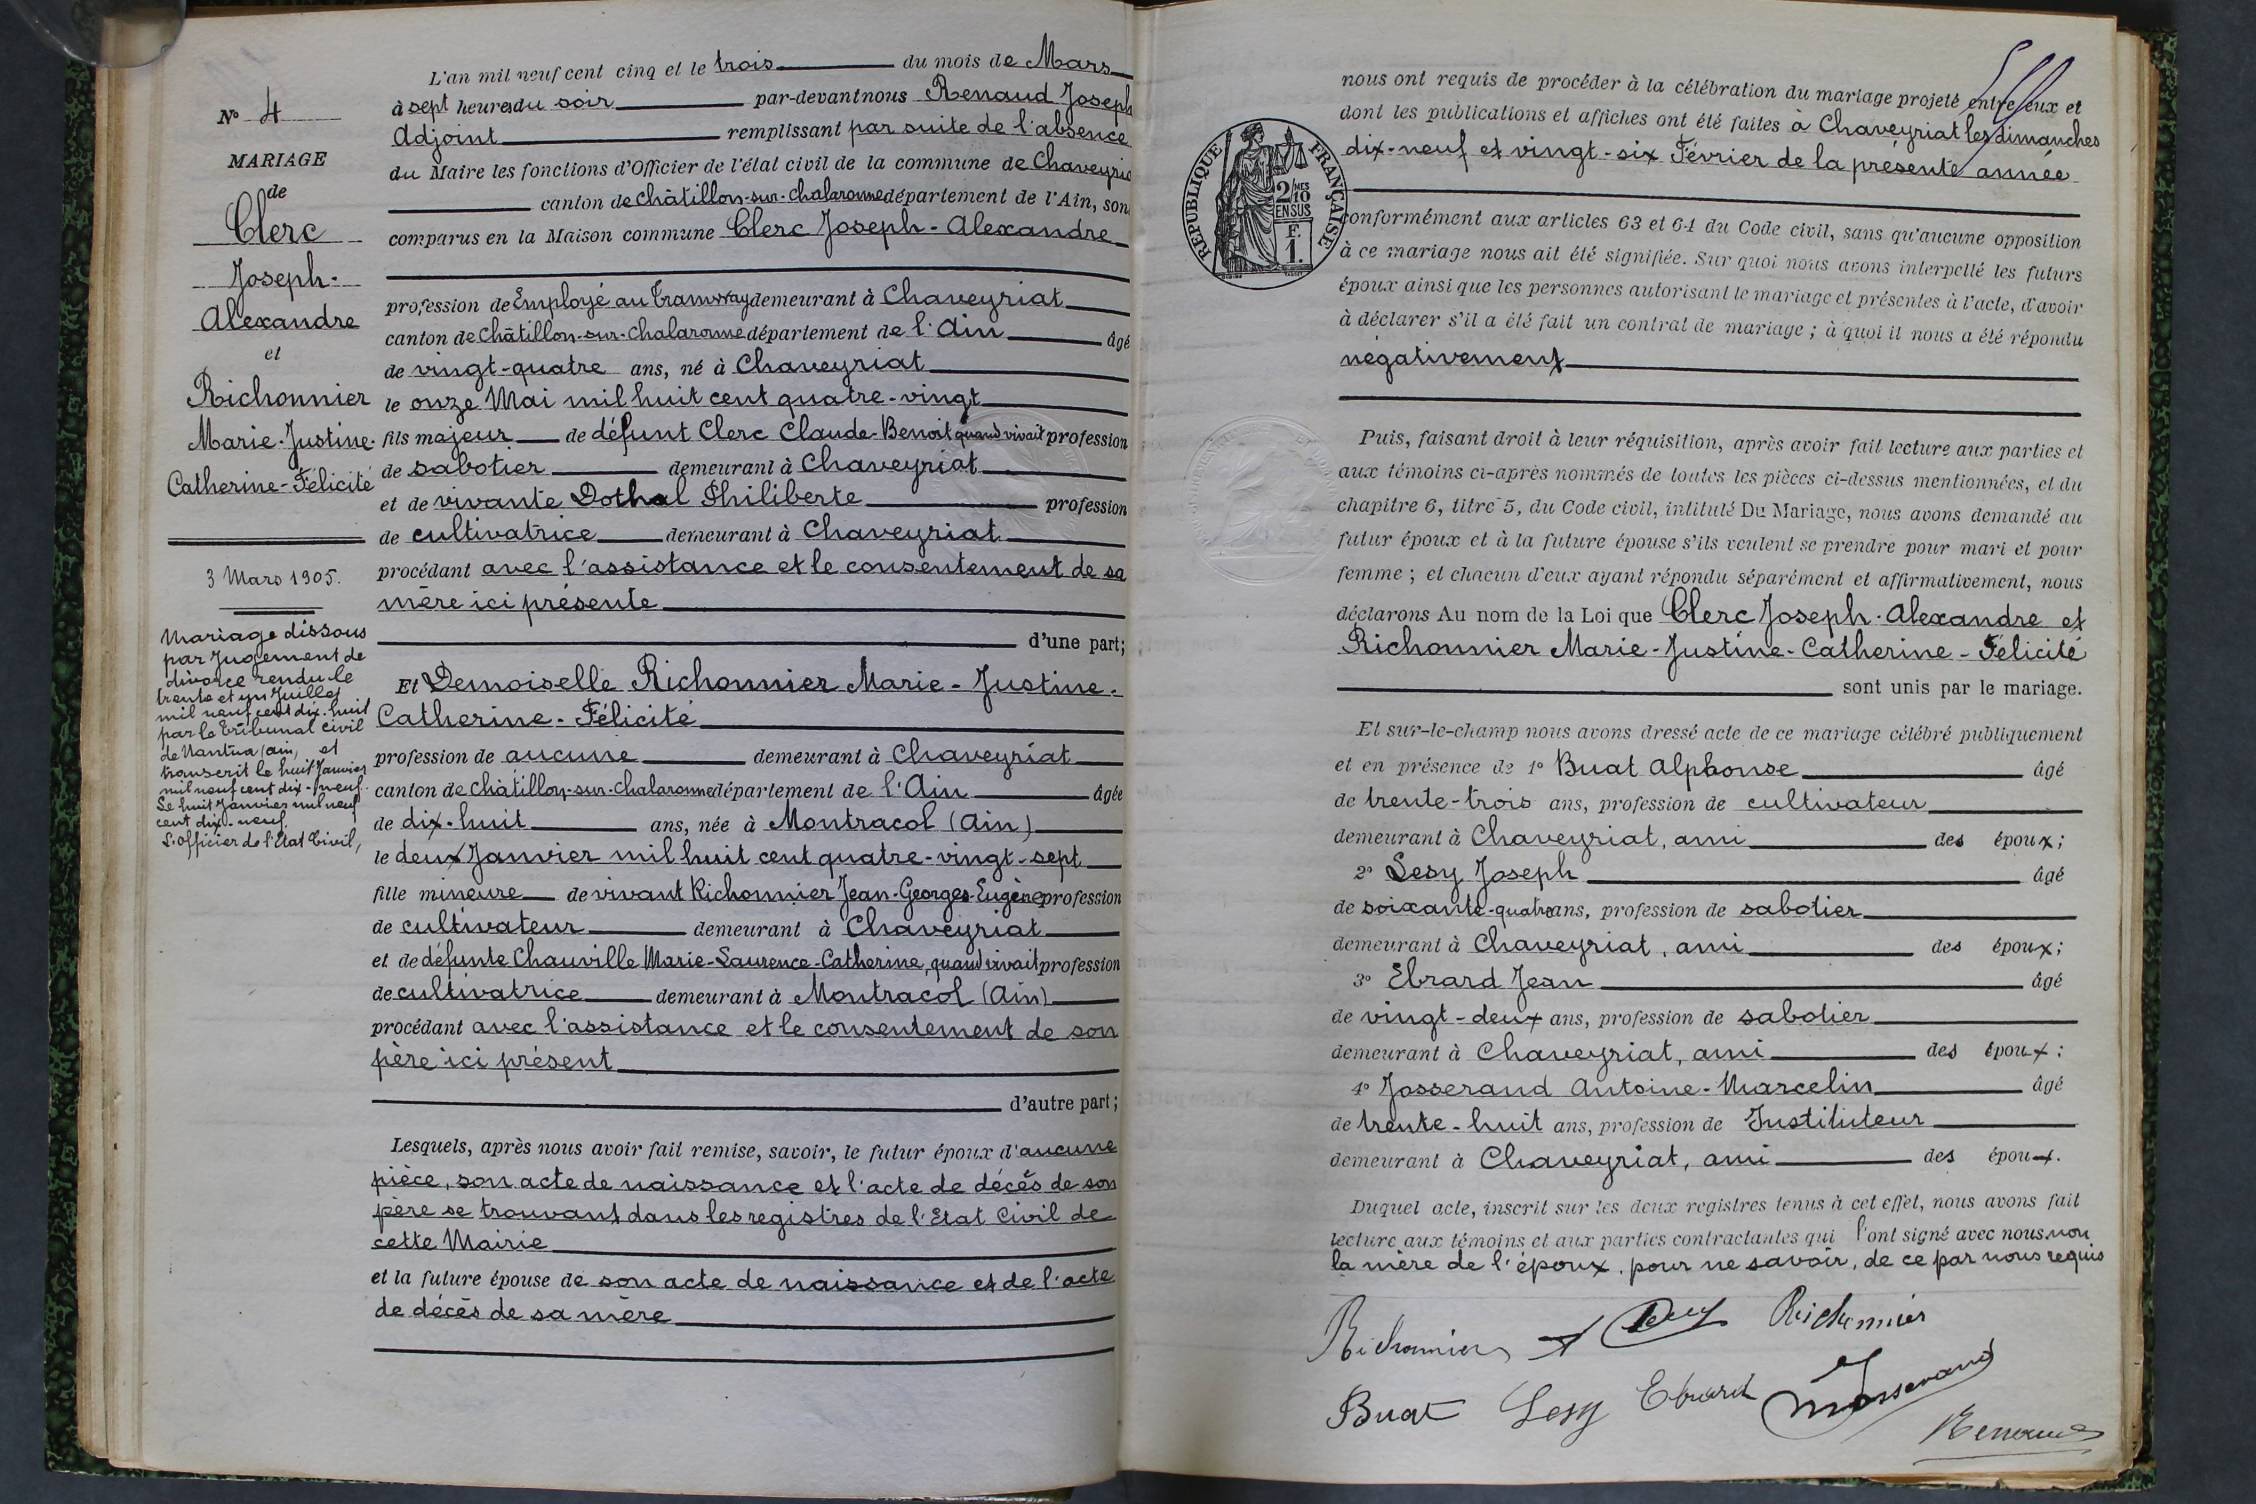 N° 4
MARIAGE
de
Clerc
Joseph-
Alexandre
et
Richonnier
Marie-Justine-
Catherine-Félicité
3 Mars 1905.
Mariage dissous
par Jugement de
divorce rendu le
trente et un Juillet
mil neuf cent dix-huit
par le Tribunal civil
de Nantua (ain) et
transcrit le huit Janvier
mil neuf cent dix-neuf.
Le huit Janvier mil neuf
cent dix-neuf.
L'officier de l'Etat Civil,
L'an mil neuf cent cinq et le trois du mois de Mars
à sept heures du soir par-devant nous Renaud Joseph
Adjoint remplissant par suite de l'absence
du Maire les fonctions d'Officier de l'état civil de la commune de Chaveyria
canton de Châtillon-sur-Chalaronne département de l'Ain, son
comparus en la Maison commune Clerc Joseph-Alexandre
profession de Employé au Tramway demeurant à Chaveyriat
canton de Châtillon-sur-Chalaronne département de l'Ain âgé
de vingt-quatre ans, né à Chaveyriat
le onze Mai mil huit cent quatre-vingt
fils majeur de défunt Clerc Claude-Benoît quand vivait profession
de sabotier demeurant à Chaveyriat
et de vivante Dothal Philiberte profession
de cultivatrice demeurant à Chaveyriat
procédant avec l'assistance et le consentement de sa
mère ici présente
d'une part;
Et Demoiselle Richonnier Marie-Justine-
Catherine-Félicité
profession de aucune demeurant à Chaveyriat
canton de Châtillon-sur-Chalaronne département de l'Ain âgée
de dix-huit ans, née à Montracol (Ain)
le deux Janvier mil huit cent quatre-vingt-sept
fille mineure de vivant Richonnier Jean-Georges-Eugène profession
de cultivateur demeurant à Chaveyriat
et de défunte Chauville Marie-Laurence-Catherine, quand vivait profession
de cultivatrice demeurant à Montracol (Ain)
procédant avec l'assistance et le consentement de son
père ici présent
d'autre part;
Lesquels, après nous avoir fait remise, savoir, le futur époux d'aucune
pièce, son acte de naissance et l'acte de décès de son
père se trouvant dans les registres de l'Etat Civil de
cette Mairie
et la future épouse de son acte de naissance et de l'acte
de décès de sa mère
nous ont requis de procéder à la célébration du mariage projeté entre eux et
dont les publications et affiches ont été faites à Chaveyriat les dimanches
dix-neuf et vingt-six Février de la présente année
RÉPUBLIQUE FRANÇAISE
2/10 MES
EN SUS
F.
1.
conformément aux articles 63 et 64 du Code civil, sans qu'aucune opposition
à ce mariage nous ait été signifiée. Sur quoi nous avons interpellé les futurs
époux ainsi que les personnes autorisant le mariage et présentes à l'acte, d'avoir
à déclarer s'il a été fait un contrat de mariage; à quoi il nous a été répondu
négativement
Puis, faisant droit à leur réquisition, après avoir fait lecture aux parties et
aux témoins ci-après nommés de toutes les pièces ci-dessus mentionnées, et du
chapitre 6, titre 5, du Code civil, intitulé Du Mariage, nous avons demandé au
futur époux et à la future épouse s'ils veulent se prendre pour mari et pour
femme; et chacun d'eux ayant répondu séparément et affirmativement, nous
déclarons Au nom de la Loi que Clerc Joseph-Alexandre et
Richonnier Marie-Justine-Catherine-Félicité
sont unis par le mariage.
Et sur-le-champ nous avons dressé acte de ce mariage célébré publiquement
et en présence de 1° Buat Alphonse âgé
de trente-trois ans, profession de cultivateur
demeurant à Chaveyriat, ami des époux;
2° Lesy Joseph âgé
de soixante-quatre ans, profession de sabotier
demeurant à Chaveyriat, ami des époux;
3° Ebrard Jean âgé
de vingt-deux ans, profession de sabotier
demeurant à Chaveyriat, ami des époux;
4° Josserand Antoine-Marcelin âgé
de trente-huit ans, profession de Instituteur
demeurant à Chaveyriat, ami des époux.
Duquel acte, inscrit sur les deux registres tenus à cet effet, nous avons fait
lecture aux témoins et aux parties contractantes qui l'ont signé avec nous, non
la mère de l'époux, pour ne savoir, de ce par nous requis
Richonnier Richonnier
Buat Lesy Ebrard Josserand
Renaud